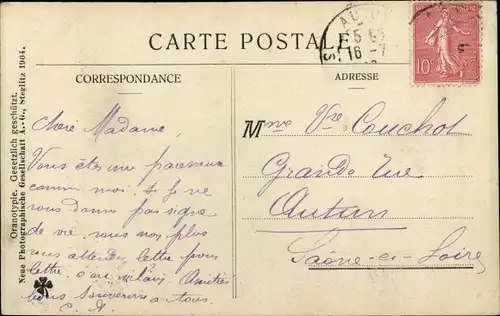 CARTE POSTALE
AU
5
16 -7
10c
CORRESPONDANCE
ADRESSE
Chère Madame,
Vous êtes une paresseuse
comme moi. si je ne
vous donne pas signe
de vie, vous non plus
vous attendez lettre pour
lettre, Amitiés
bons Souvenirs à tous.
Mme Vve Couchot
Grande rue
Autun
Saône-et-Loire
Oranotypie. Gesetzlich geschützt.
Neue Photographische Gesellschaft A.-G., Steglitz 1904.